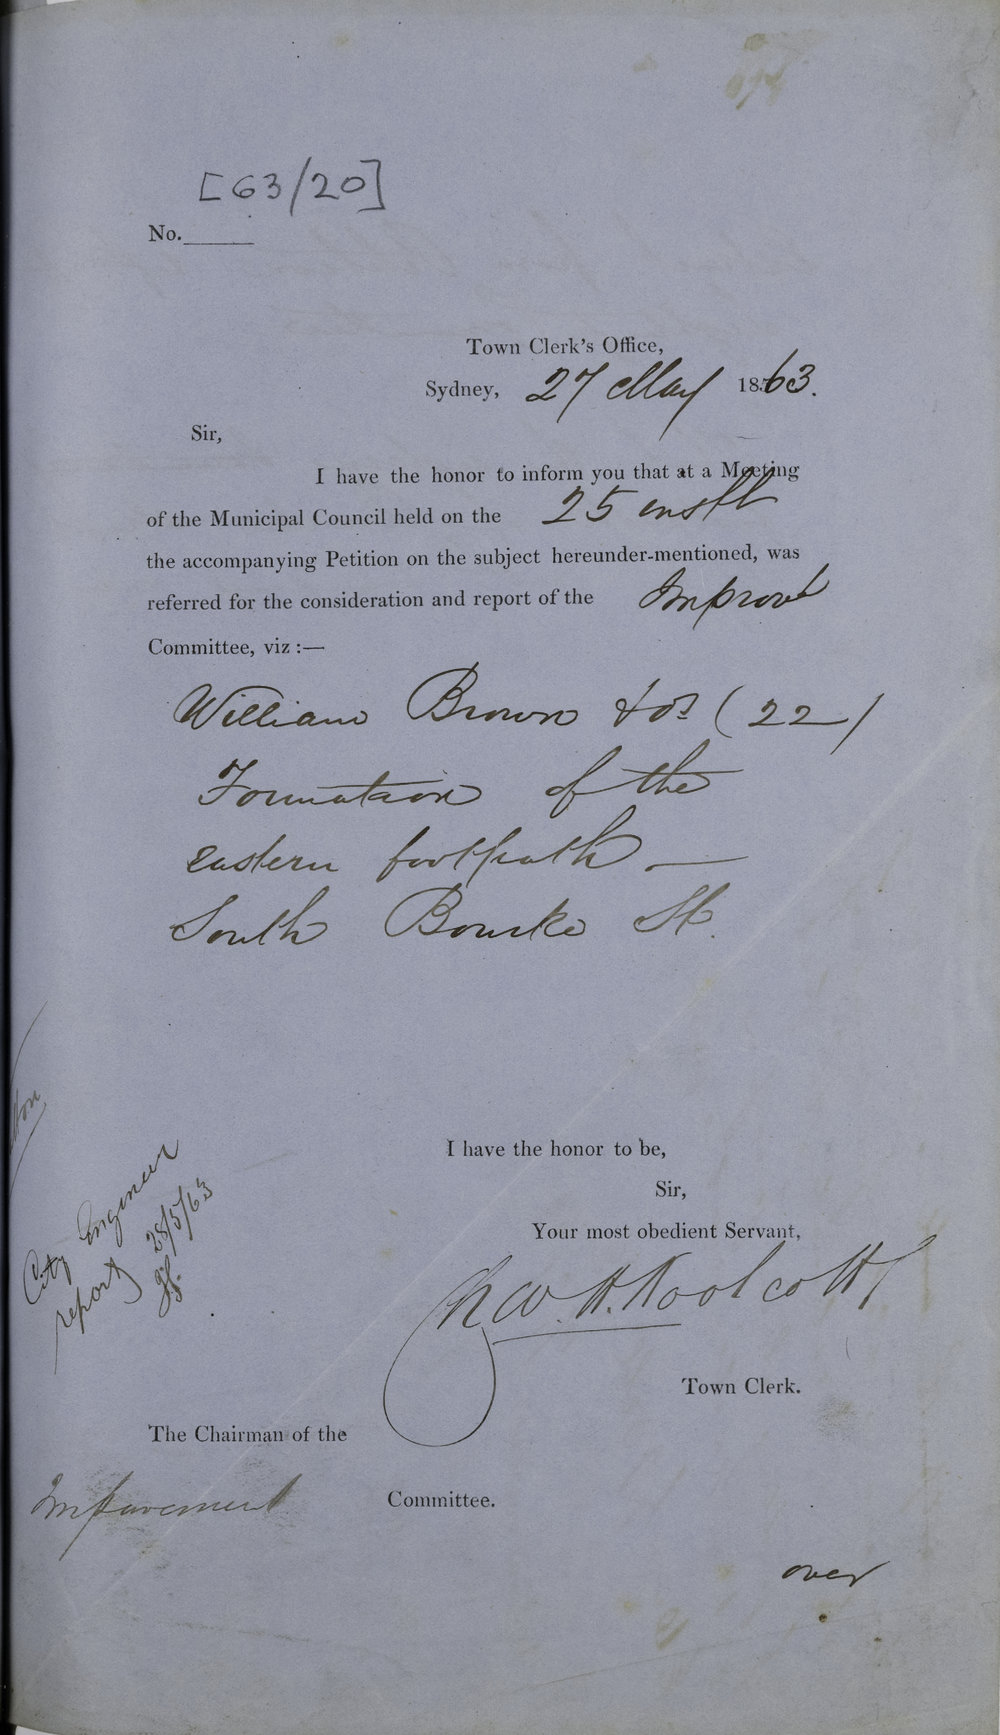 [63/20]
No.
Town Clerk's Office,
Sydney, 27 May 1863.
Sir,
I have the honor to inform you that at a Meeting
of the Municipal Council held on the 25 instt
the accompanying Petition on the subject hereunder-mentioned, was
referred for the consideration and report of the Improvt
Committee, viz :—
William Brown & ors (22)
Formation of the
eastern footpath —
South Bourke St.
I have the honor to be,
Sir,
Your most obedient Servant,
City Engineer
report 28/5/63
Woolcott
Town Clerk.
The Chairman of the
Improvement Committee.
over